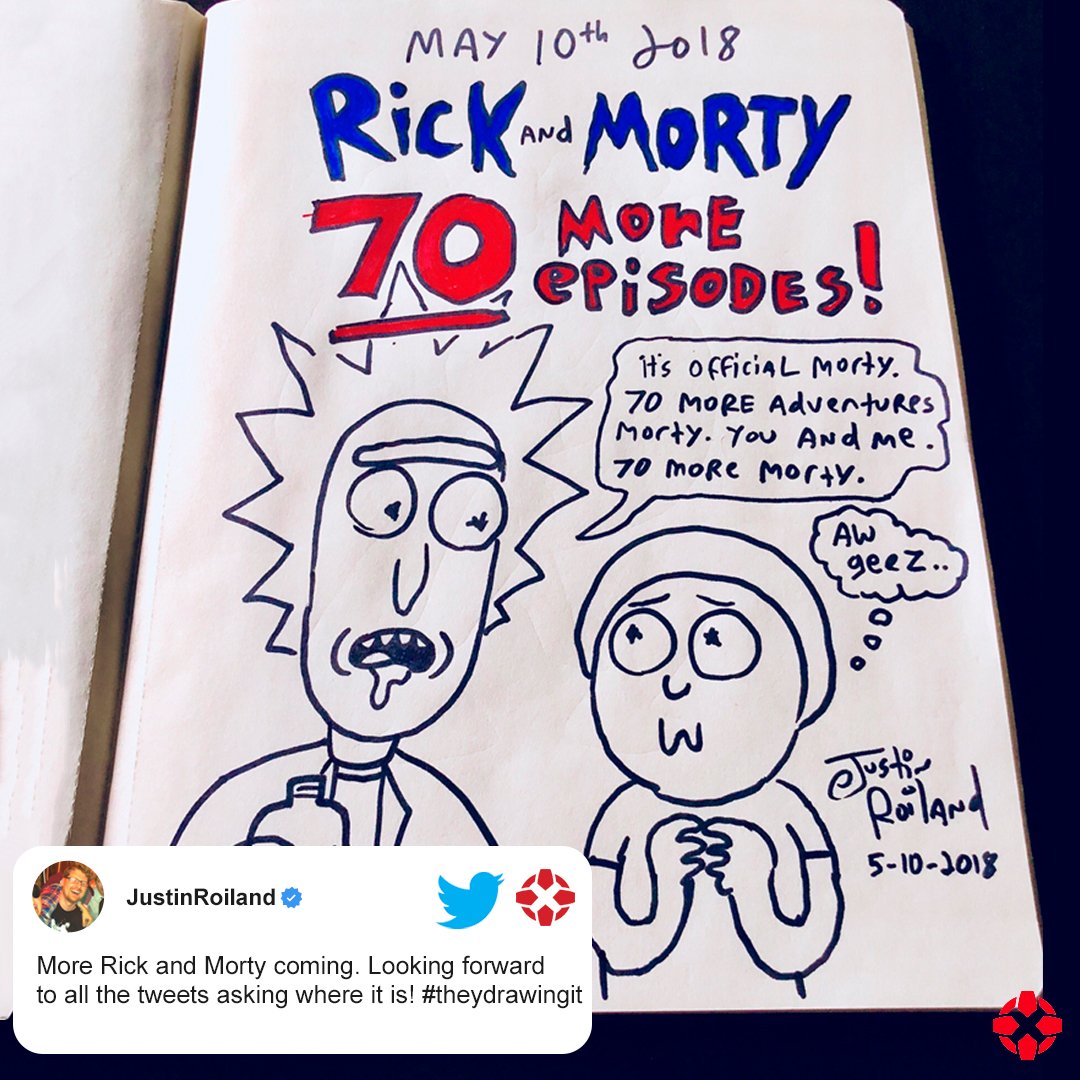 MAY 10th 2018
RicK AND MORTY
70 MORE
EPiSODES!
it's official Morty.
70 MORE Adventures
Morty. You And me.
70 more Morty.
AW
geez..
Justin
Roiland
5-10-2018
JustinRoiland
More Rick and Morty coming. Looking forward
to all the tweets asking where it is! #theydrawingit